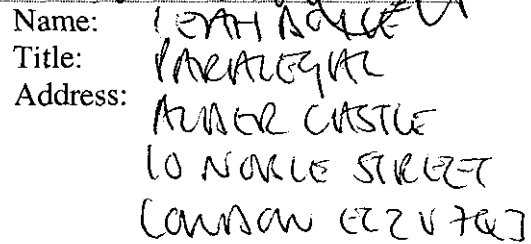 Name: LEAH
Title: PARALEGAL
Address:
ALDER CASTLE
10 NOBLE STREET
LONDON EC2V 7QJ